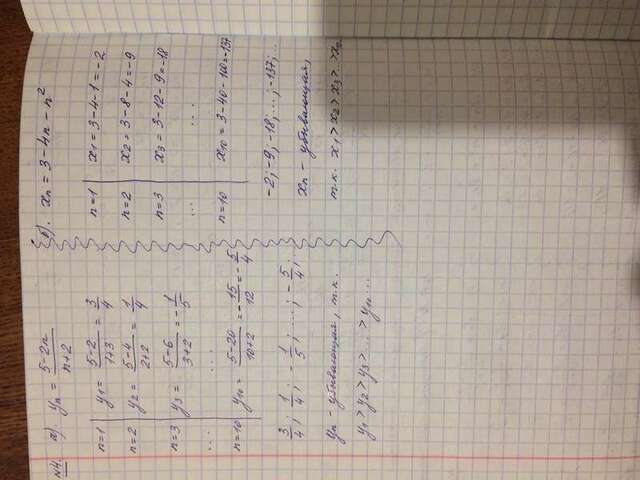 №4. а). yₙ = (5-2n)/(n+2)
n=1 | y₁ = (5-2)/(1+3) = 3/4
n=2 | y₂ = (5-4)/(2+2) = 1/4
n=3 | y₃ = (5-6)/(3+2) = -1/5
... | ...
n=10 | y₁₀ = (5-20)/(10+2) = -15/12 = -5/4
3/4; 1/4; -1/5; ...; -5/4;
yₙ - убывающая, т.к.
y₁ > y₂ > y₃ > ... > y₁₀ ...
б). xₙ = 3-4n-n²
n=1 | x₁ = 3-4-1 = -2
n=2 | x₂ = 3-8-4 = -9
n=3 | x₃ = 3-12-9 = -18
... | ...
n=10 | x₁₀ = 3-40-100 = -137
-2; -9; -18; ...; -137; ...
xₙ - убывающая,
т.к. x₁ > x₂ > x₃ > ... >